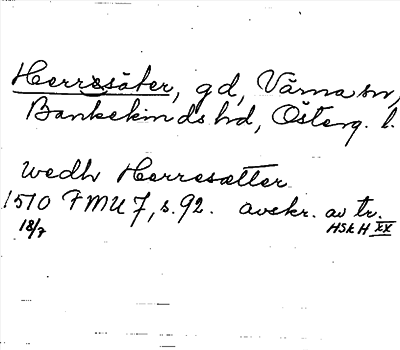 Herresäter, gd, Värna sn,
Bankekinds hd, Österg. l.
wedh Herresætter
1510 FMU 7, s. 92. avskr. av tr.
18/7 HSkH XX